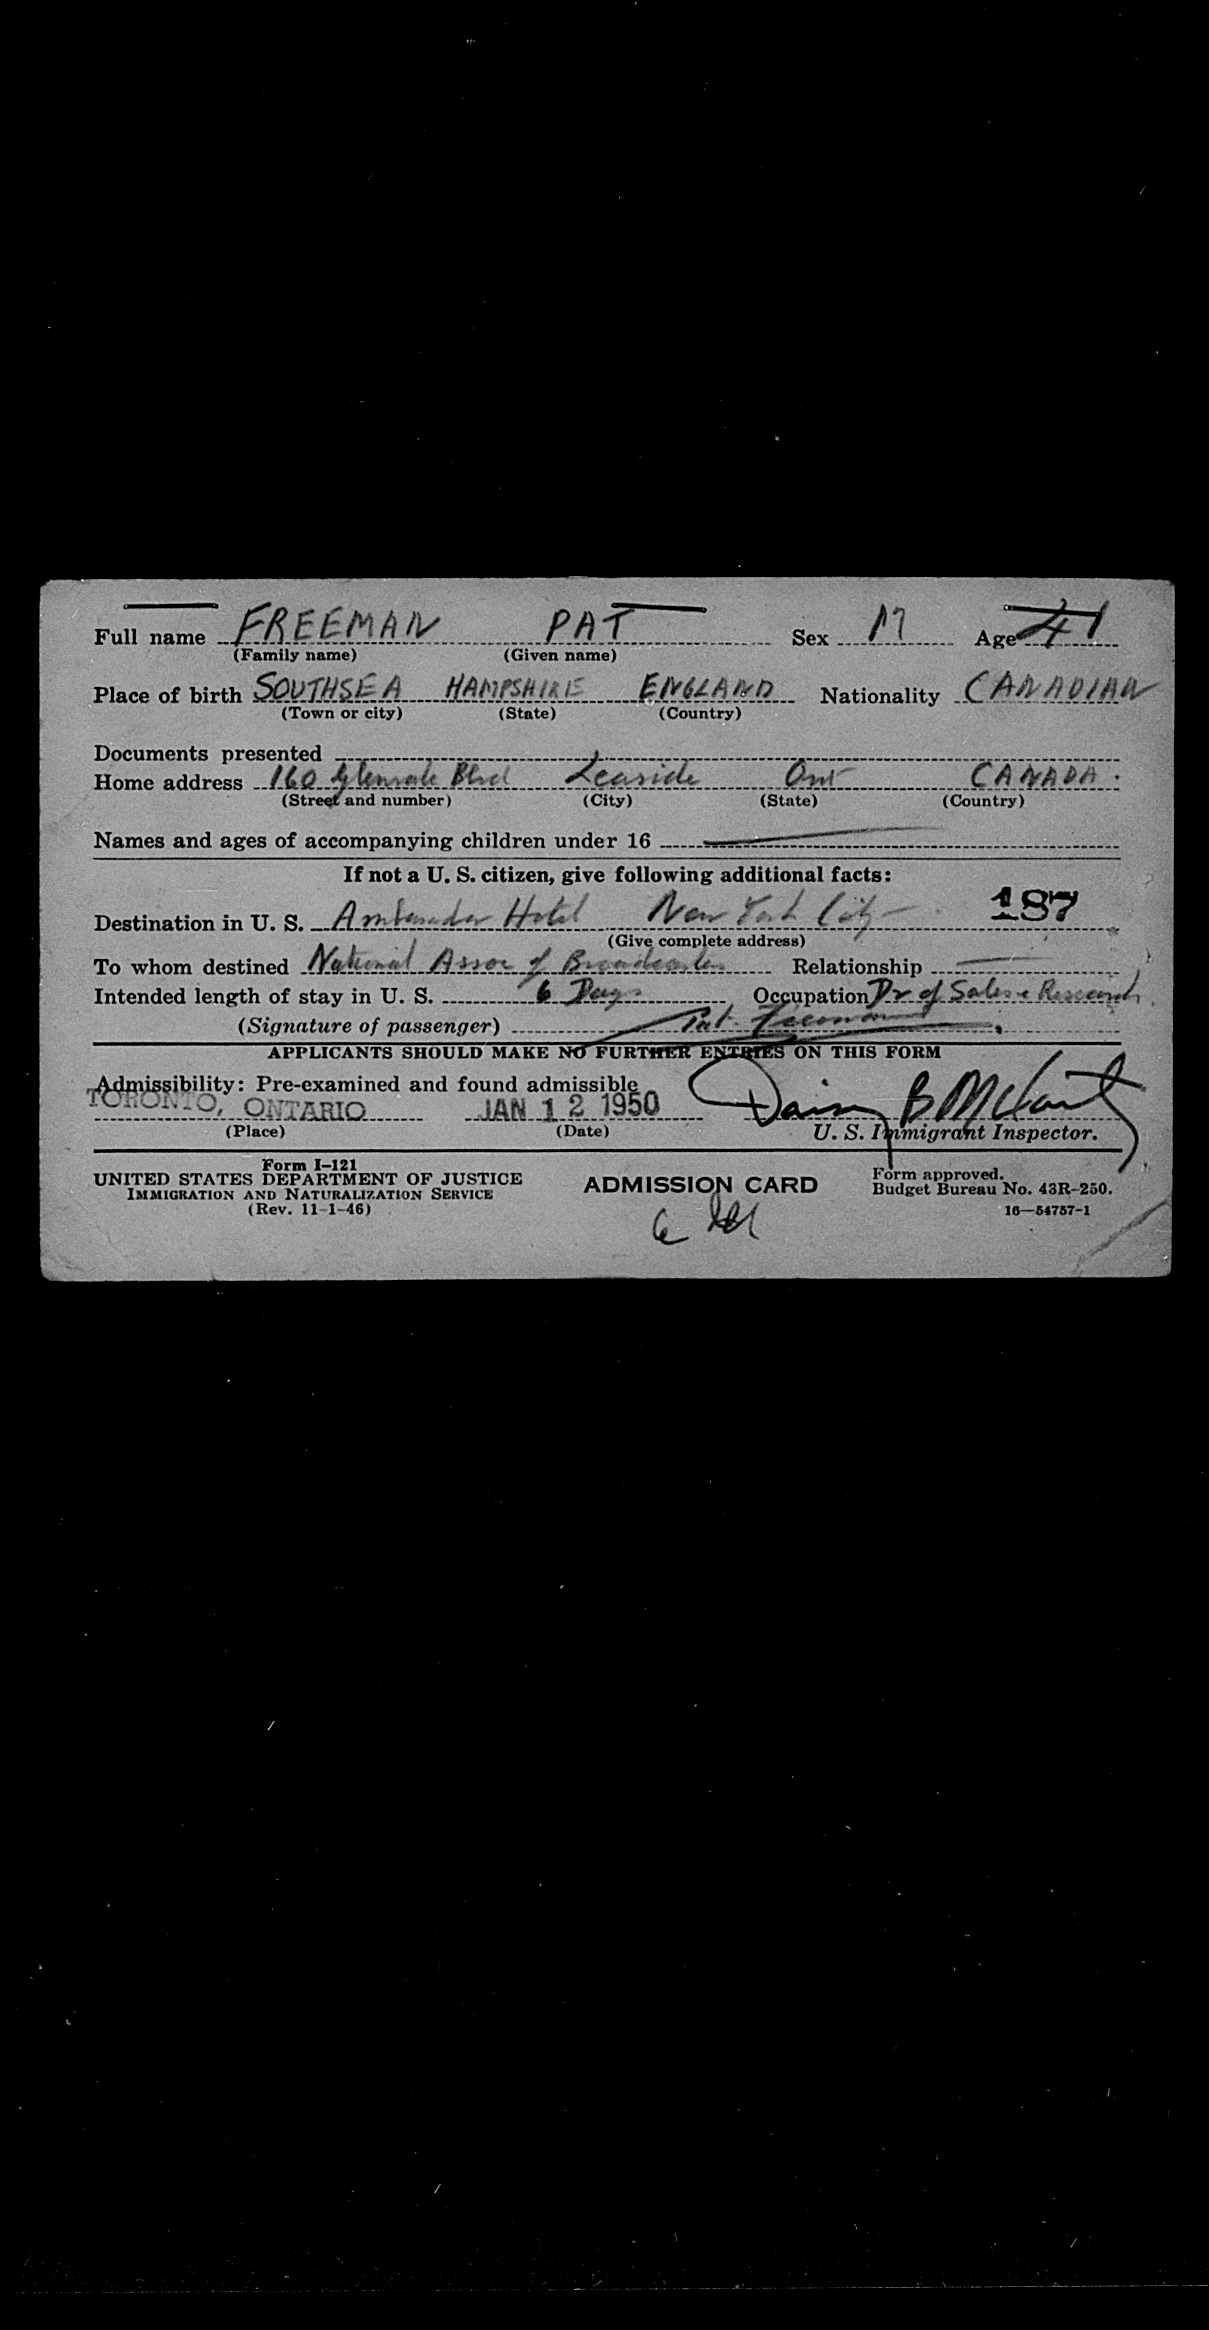 Full name FREEMAN PAT Sex M Age 41
(Family name) (Given name)
Place of birth SOUTHSEA HAMPSHIRE ENGLAND Nationality CANADIAN
(Town or city) (State) (Country)
Documents presented
Home address 160 Glenvale Blvd Leaside Ont CANADA.
(Street and number) (City) (State) (Country)
Names and ages of accompanying children under 16
If not a U. S. citizen, give following additional facts:
187
Destination in U. S. Ambassador Hotel New York City
(Give complete address)
To whom destined National Assoc of Broadcasters Relationship
Intended length of stay in U. S. 6 Days Occupation Dr of Sales & Research
(Signature of passenger) Pat Freeman
APPLICANTS SHOULD MAKE NO FURTHER ENTRIES ON THIS FORM
Admissibility: Pre-examined and found admissible
TORONTO, ONTARIO JAN 12 1950 B
(Place) (Date) U. S. Immigrant Inspector.
Form I-121
UNITED STATES DEPARTMENT OF JUSTICE
IMMIGRATION AND NATURALIZATION SERVICE
(Rev. 11-1-46)
ADMISSION CARD
Form approved.
Budget Bureau No. 43R-250.
16—54757-1